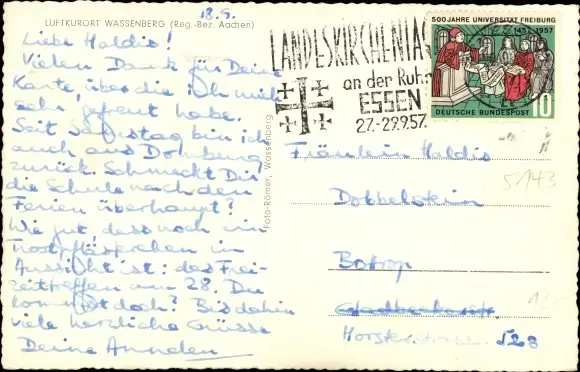 LUFTKURORT WASSENBERG (Reg.-Bez. Aachen)
18.9.
Liebe Haldis!
Vielen Dank für Deine
Karte, über die ich mich
sehr gefreut habe.
Seit Samstag bin ich
auch aus Domburg
zurück. Schmeckt Dir
die Schule nach den
Ferien überhaupt?
Wie gut, dass noch ein
Trostpflästerchen in
Aussicht ist: das Frei-
zeittreffen am 28. Du
kommst doch? Bis dahin
viele herzliche Grüsse
Deine
Foto-Römer, Wassenberg
LANDESKIRCHENTAG
an der Ruhr
ESSEN
27.-29.9.57.
500 JAHRE UNIVERSITÄT FREIBURG
1457-1957
DEUTSCHE BUNDESPOST
10
Fräulein Haldis
Dobbelstein
Botrop
5143